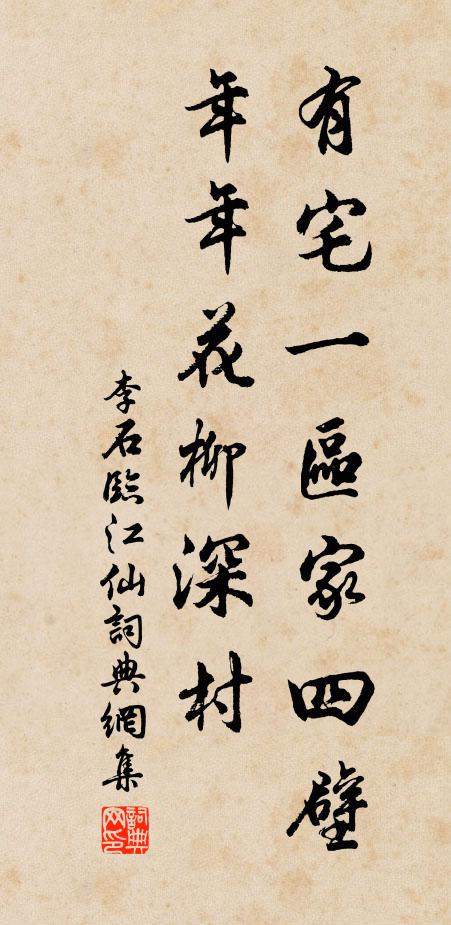 有宅一區家四壁
年年花柳深村
李石臨江仙詞典網集
詞典网印